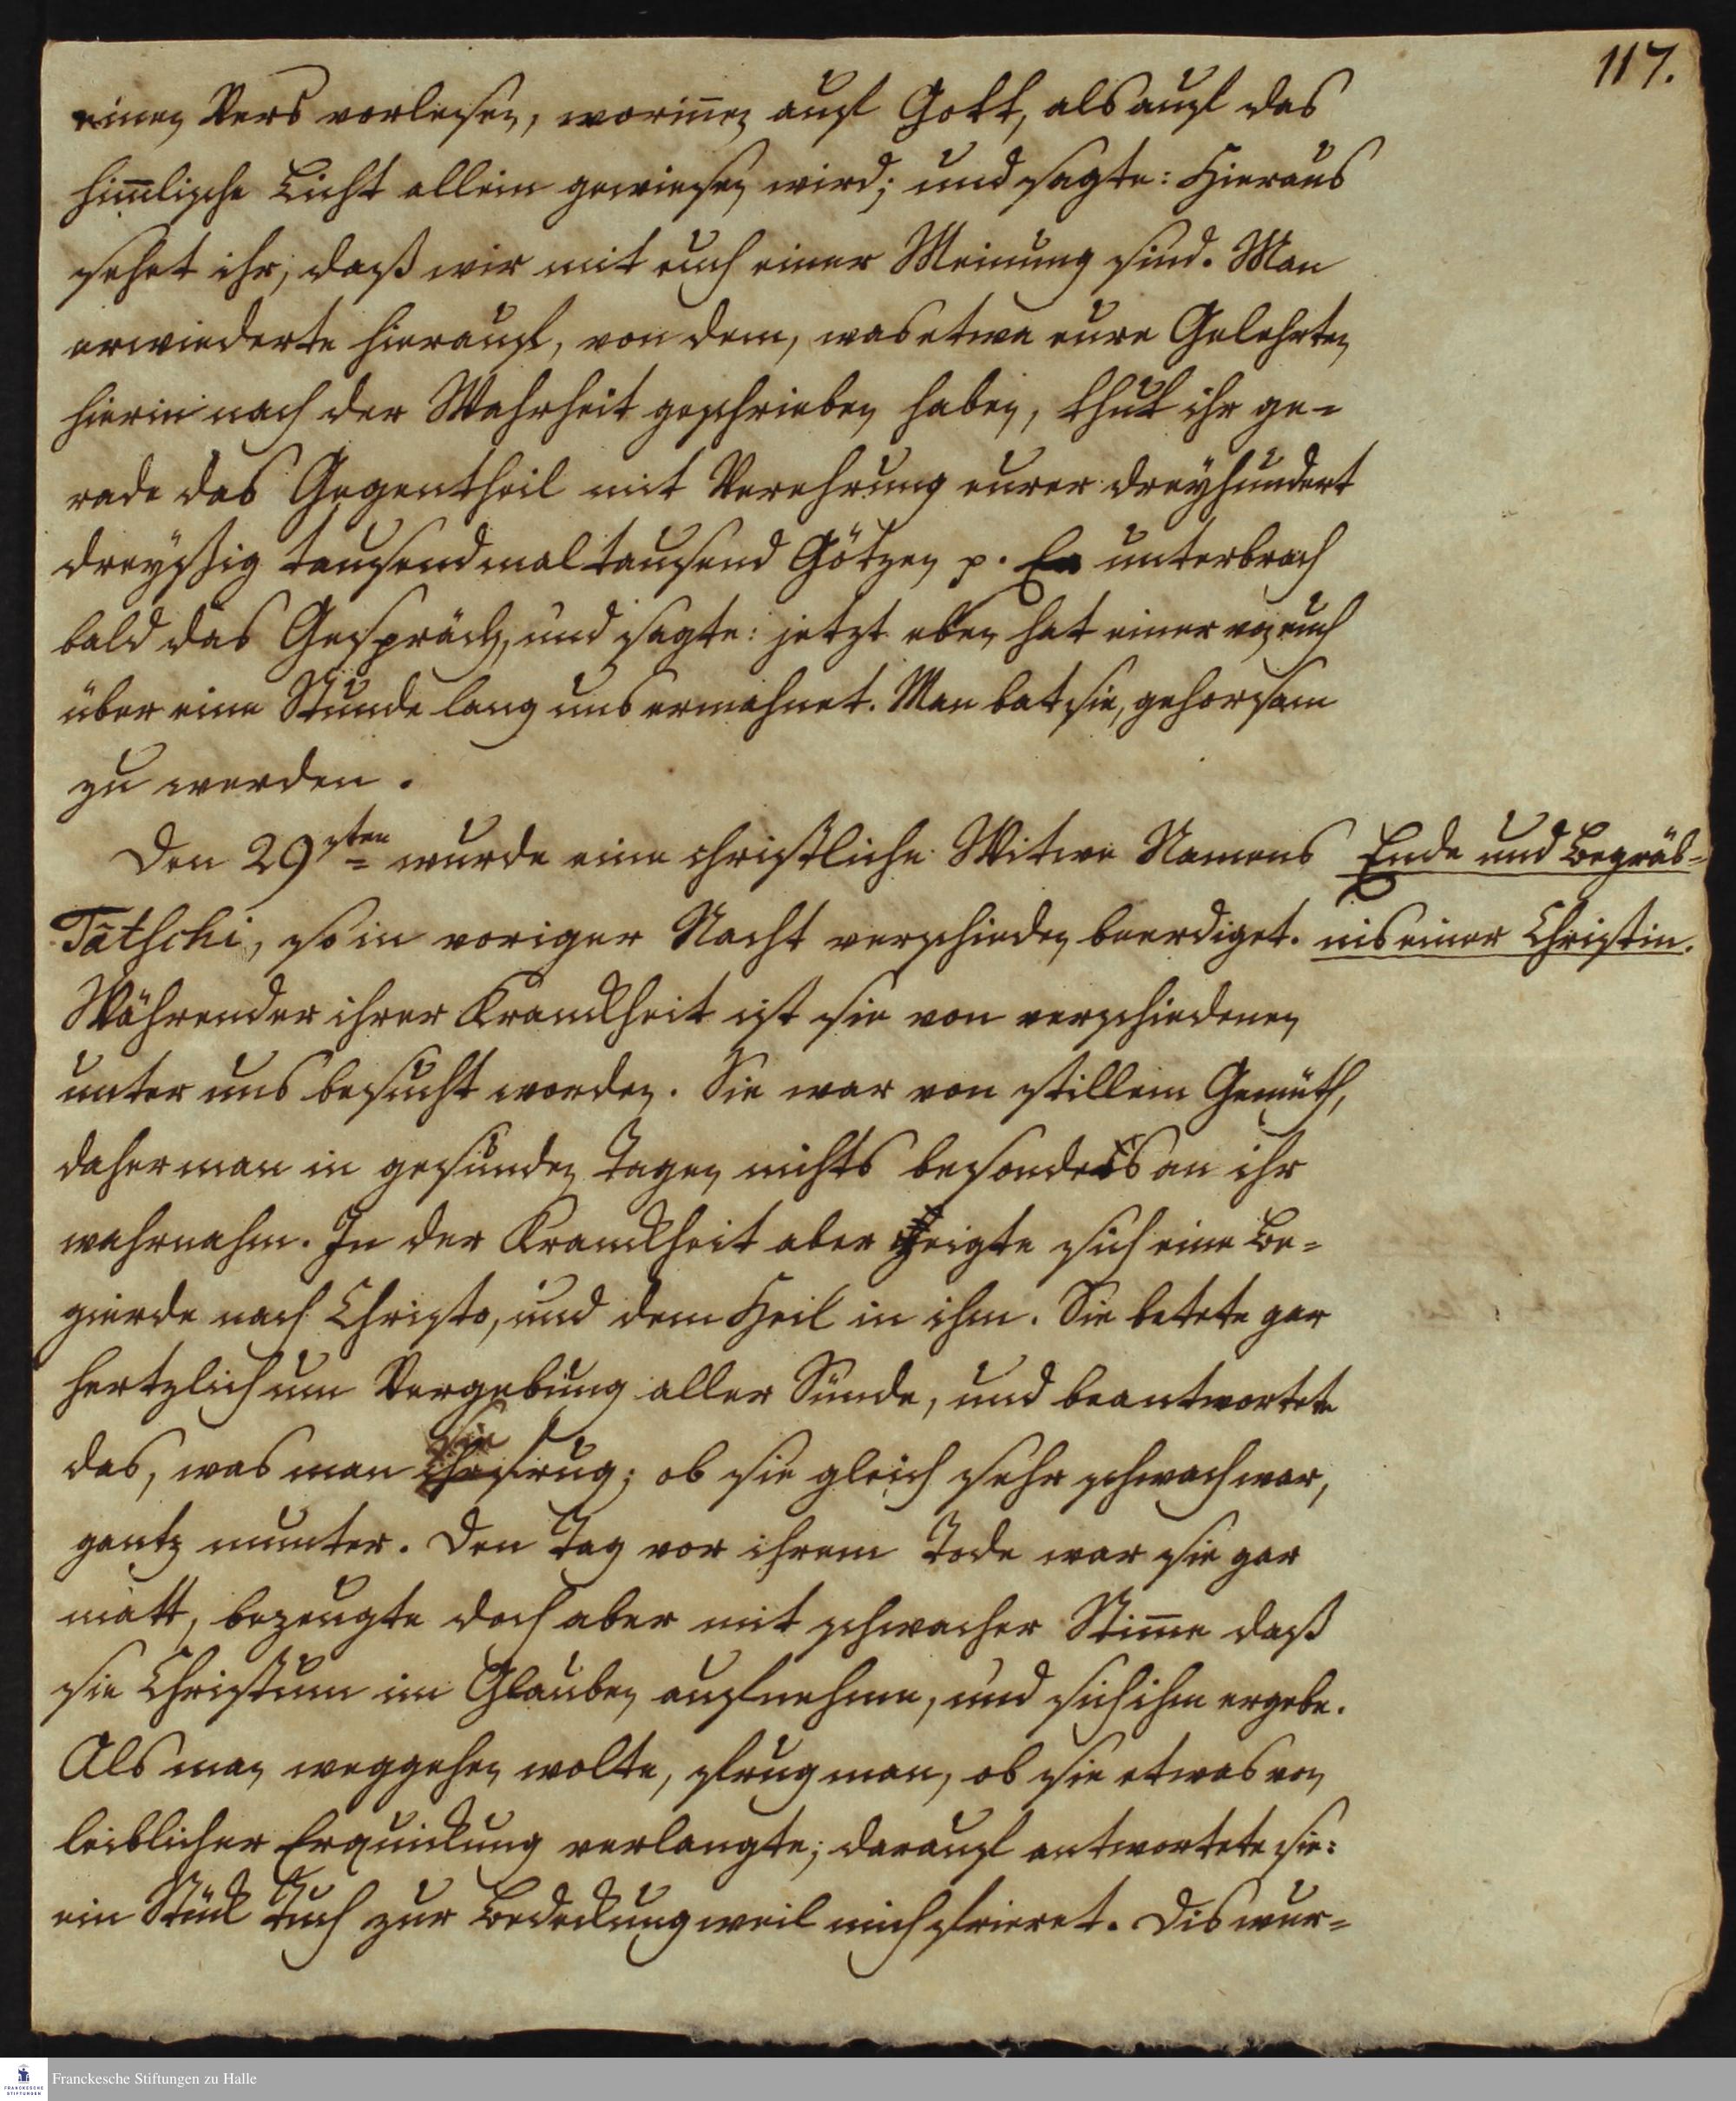 117.
einen Vers vorlesen, worin̅en auf Gott, als auf das
him̅lische Licht allein gewiesen wird; und sagte: Hieraus
sehet ihr, daß wir mit euch einer Meinung sind. Man
erwiederte hierauf, von dem, was etwa eure Gelehrten
hierin nach der Wahrheit geschrieben haben, thut ihr ge-
rade das Gegentheil mit Verehrung eurer dreyhundert
dreyßig tausendmal tausend Götzen p. Er unterbrach
bald das Gespräch, und sagte: jetzt eben hat einer von euch
über eine Stunde lang uns ermahnet. Man bat sie, gehorsam
zu werden.
Den 29sten wurde eine christliche Witwe Namens
Tātschi, so in voriger Nacht verschieden, beerdiget.
Ende und Begräb-
nis einer Christin.
Währender ihrer Kranckheit ist sie von verschiedenen
unter uns besucht worden. Sie war von stillem Gemüth,
daher man in gesunden Tagen nichts besonders an ihr
wahrnahm. In der Kranckheit aber zeigte sich eine Be-
gierde nach Christo, und dem Heil in ihm. Sie betete gar
hertzlich um Vergebung aller Sünde, und beantwortete
das, was man sie frug; ob sie gleich sehr schwach war,
gantz munter. Den Tag vor ihrem Tode war sie gar
matt, bezeugte doch aber mit schwacher Stim̅e daß
sie Christum im Glauben aufnehme, und sich ihm ergebe.
Als man weggehen wolte, frug man, ob sie etwas von
leiblicher Erquickung verlangte; darauf antwortete sie:
ein Stück Tuch zur Bedeckung weil mich frieret. Dis wur-
Franckesche Stiftungen zu Halle
FRANCKESCHE
STIFTUNGEN